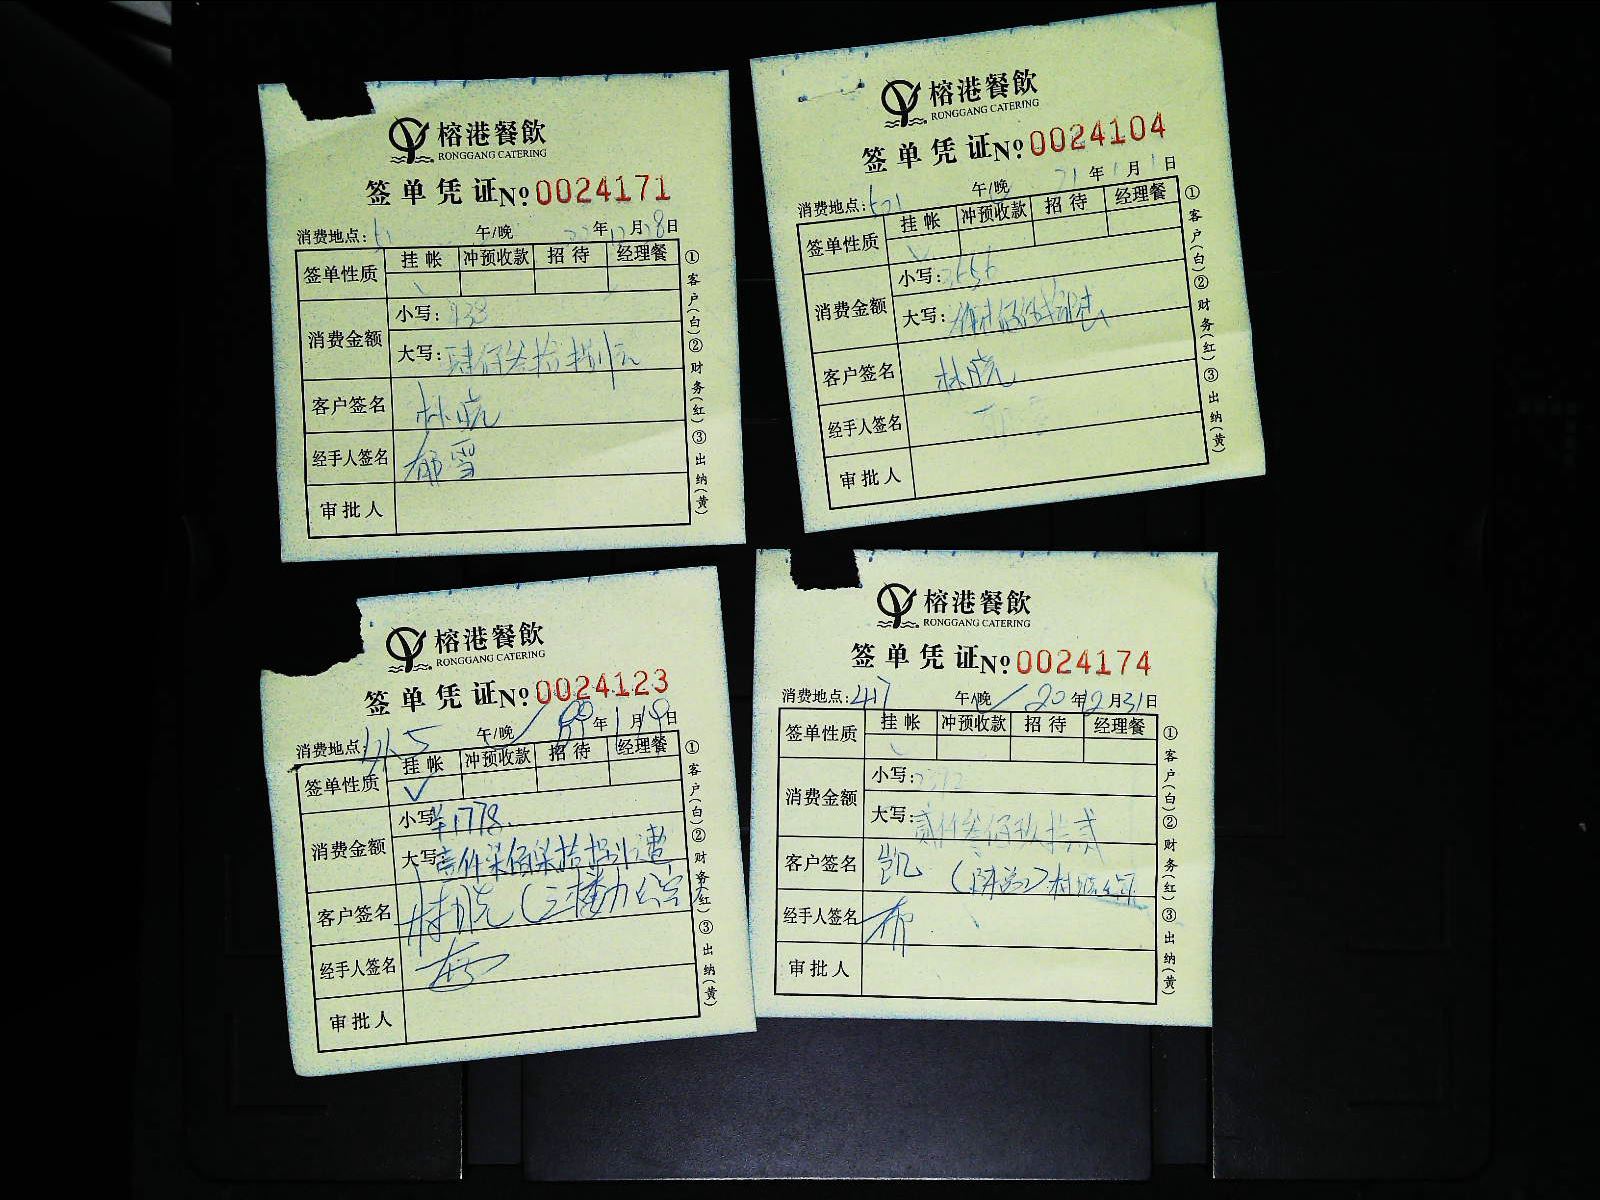 榕港餐飲
RONGGANG CATERING
签单凭证№0024171
消费地点: 午/晚 年 月 日
签单性质 挂帐 冲预收款 招待 经理餐
消费金额
小写:
大写:肆佰叁拾捌元
客户签名 林晓
经手人签名 郁雪
审批人
①客户(白)②财务(红)③出纳(黄)
榕港餐飲
RONGGANG CATERING
签单凭证№0024104
消费地点: 午/晚 21年1月1日
签单性质 挂帐 冲预收款 招待 经理餐
消费金额
小写:
大写:
客户签名 林晓
经手人签名
审批人
①客户(白)②财务(红)③出纳(黄)
榕港餐飲
RONGGANG CATERING
签单凭证№0024123
消费地点: 午/晚 年1月19日
签单性质 挂帐 冲预收款 招待 经理餐
消费金额
小写:¥1778.
大写:壹仟柒佰柒拾捌
客户签名 林晓(三楼办公室)
经手人签名
审批人
①客户(白)②财务(红)③出纳(黄)
榕港餐飲
RONGGANG CATERING
签单凭证№0024174
消费地点:417 午/晚 20年12月31日
签单性质 挂帐 冲预收款 招待 经理餐
消费金额
小写:2392
大写:贰仟叁佰玖拾贰
客户签名 凯
经手人签名
审批人
①客户(白)②财务(红)③出纳(黄)